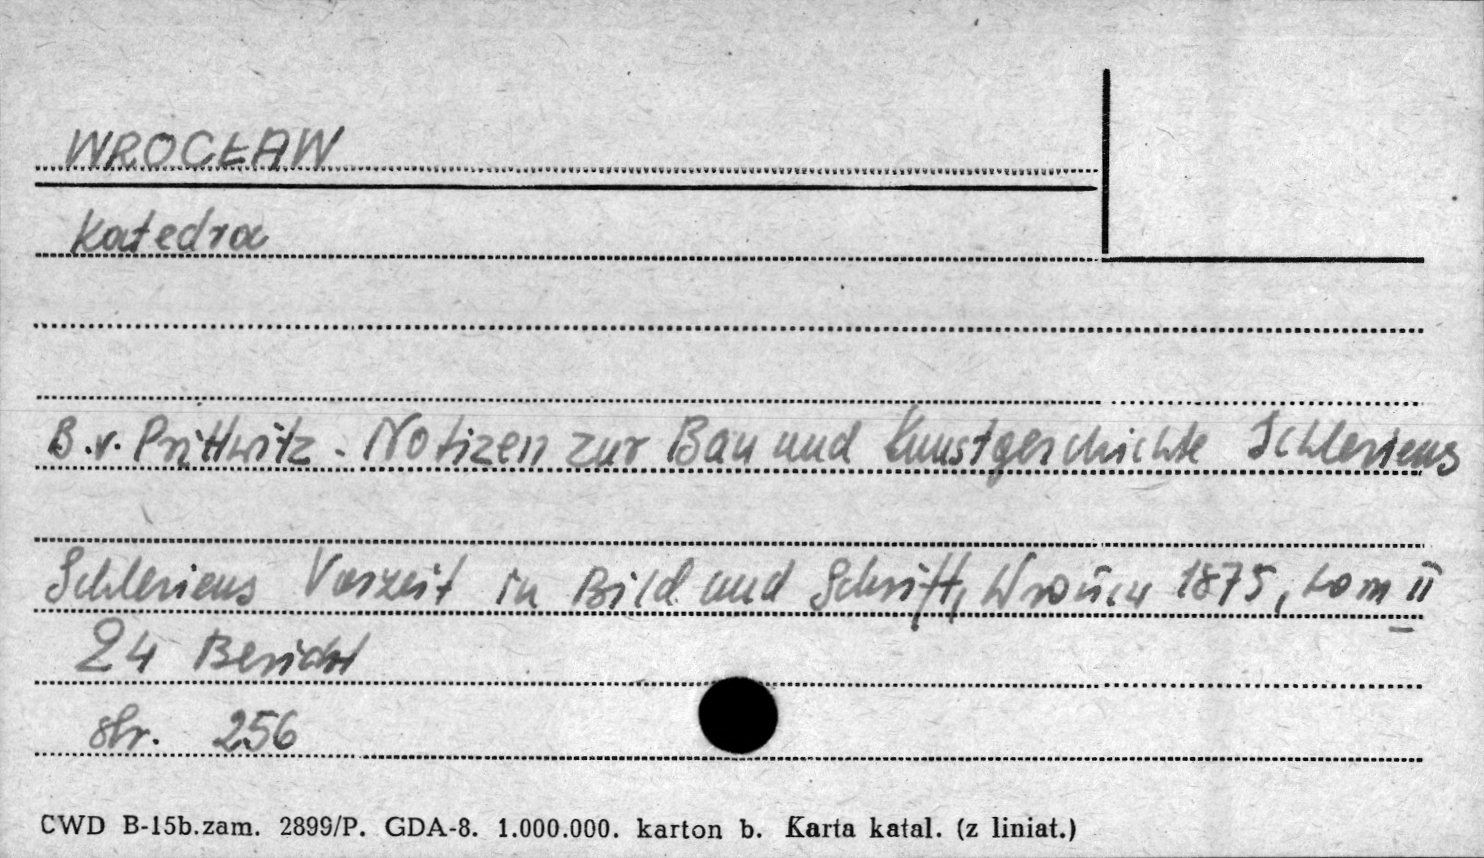 WROCŁAW
Katedra
B.v. Prittwitz - Notizen zur Bau und Kunstgeschichte Schlesiens
Schlesiens Vorzeit in Bild und Schrift, Wrocław 1875, tom II
24 Bericht
str. 256
CWD B-15b.zam. 2899/P. GDA-8. 1.000.000. karton b. Karta katal. (z liniat.)